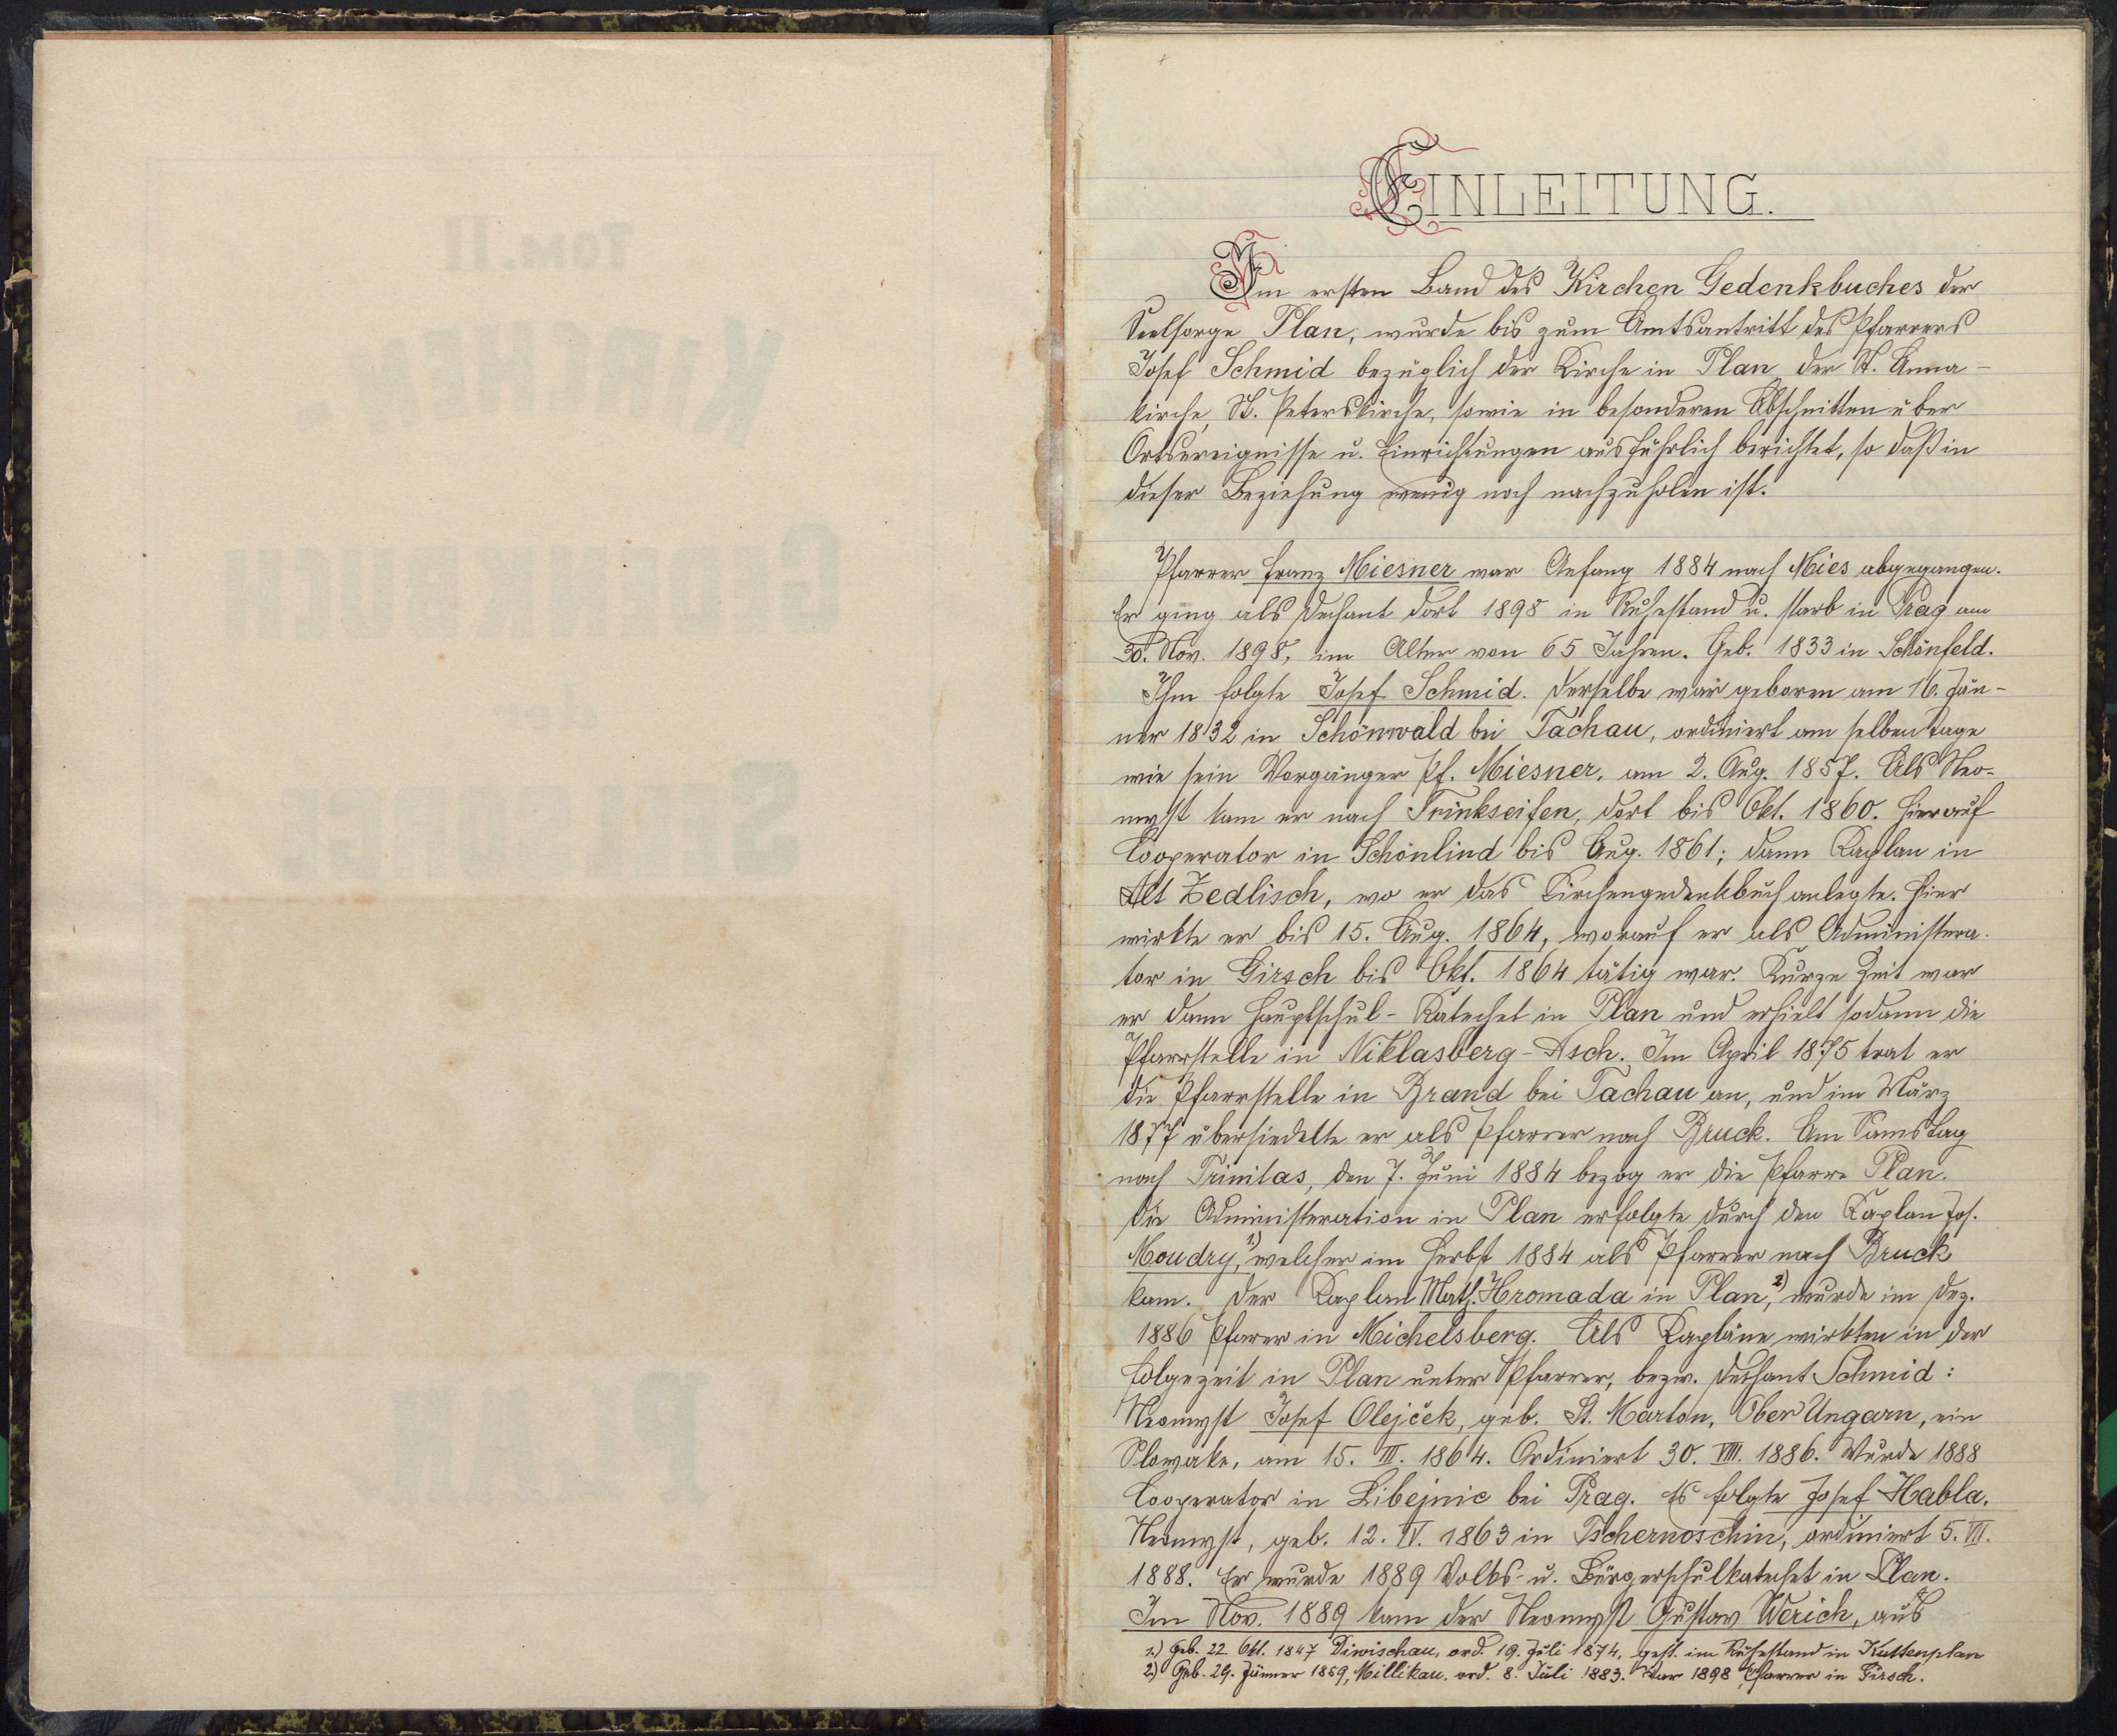 EINLEITUNG.
Im ersten Band des Kirchen Gedenkbuches der
Seelsorge Plan, wurde bis zum Amtsantritt des Pfarrers
Josef Schmid bezüglich der Kirche in Plan, der St. Anna-
kirche, St. Peterskirche, sowie in besonderen Abschnitten über
Ortsereignisse u. Einrichtungen ausführlich berichtet, so daß in
dieser Beziehung wenig noch nachzuholen ist.
Pfarrer Franz Miesner war Anfang 1884 nach Mies abgegangen.
Er ging als Dechant dort 1898 in Ruhestand u. starb in Prag am
30. Nov. 1898, im Alter von 65 Jahren. Geb. 1833 in Schönfeld.
Ihm folgte Josef Schmid. Derselbe war geboren am 16. Jän-
ner 1832 in Schönwald bei Tachau, ordiniert am selben Tage
wie sein Vorgänger Pf. Miesner, am 2. Aug. 1857. Als Neo-
myst kam er nach Trinkseifen, dort bis Okt. 1860. Hierauf
Cooperator in Schönlind bis Aug. 1861; dann Kaplan in
Alt Zedlisch, wo er das Kirchengedenkbuch anlegte. Hier
wirkte er bis 15. Aug. 1864, worauf er als Administra-
tor in Girsch bis Okt. 1864 tätig war. Kurze Zeit war
er dann Hauptschul-Katechet in Plan und erhielt sodann die
Pfarrstelle in Niklasberg-Asch. Im April 1875 trat er
die Pfarrstelle in Brand bei Tachau an, und im März
1877 übersiedelte er als Pfarrer nach Bruck. Am Samstag
nach Trinitas, den 7. Juni 1884 bezog er die Pfarre Plan.
Die Administration in Plan erfolgte durch den Kaplan Jos.
Moudry,1.) welcher im Herbst 1884 als Pfarrer nach Bruck
kam. Der Kaplan Math. Hromada in Plan,2) wurde im Dez.
1886 Pfarrer in Michelsberg. Als Kapläne wirkten in der
Folgezeit in Plan unter Pfarrer, bezw. Dechant Schmid:
Neomyst Josef Olejček, geb. St. Marton, Ober Ungarn, ein
Slowake, am 15. III. 1864. Ordiniert 30. VIII. 1886. Wurde 1888
Cooperator in Libejnic bei Prag. Es folgte Josef Habla,
Neomyst, geb. 12. IV. 1863 in Tschernoschin, ordiniert 5. VII.
1888. Er wurde 1889 Volks- u. Bürgerschulkatechet in Plan.
Im Nov. 1889 kam der Neomyst Gustav Werich, aus
1.) Geb. 22. Okt. 1847 Diwischau, ord. 19. Juli 1874, gest. im Ruhestand in Kuttenplan
2.) Geb. 29. Jänner 1859, Millikau, ord. 8. Juli 1883. War 1898 Pfarrer in Girsch.